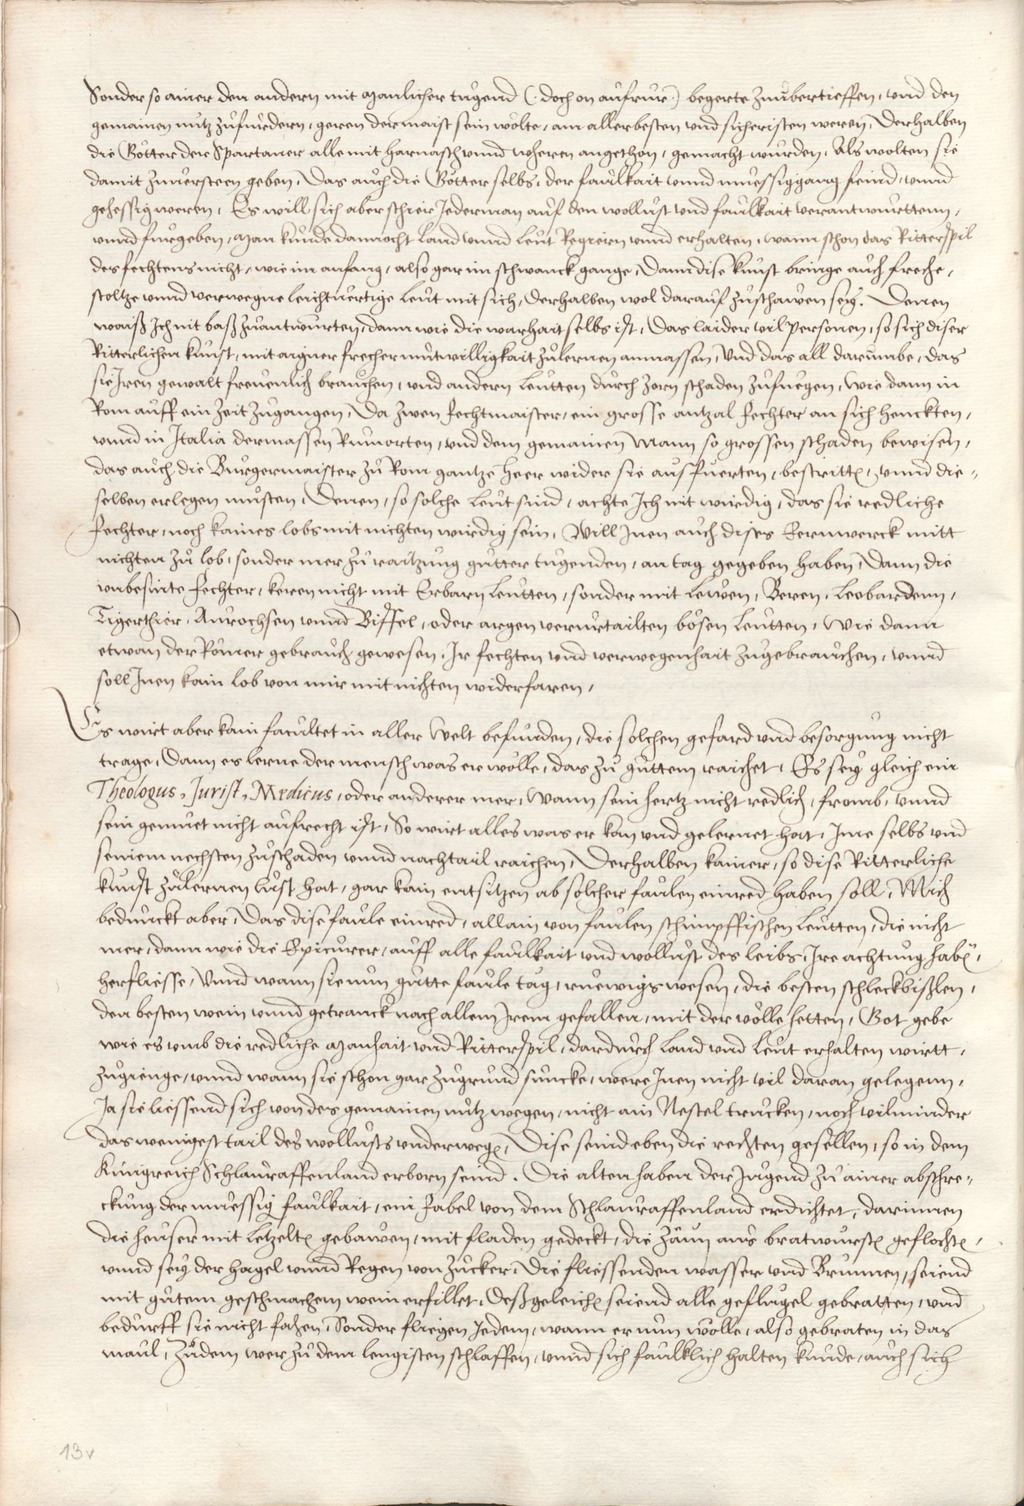 Sonder so ainer den andern mit Manlicher tugend (: doch on aufrur :) begerte zuubertreffen, und den
gemainen nutz zufurdern, geren der maist sein wolte, am allerbesten und sicheristen weren, Derhalben
die Götter der Spartaner alle mit harnasch unnd wheren angethon, gemacht wurden, Als wolten sie
damit zuversteen geben, Das auch die Götter selbs, der faulkait unnd muessiggang feind, unnd
gehessig weren, Es will sich aber schier Jederman auf den wollust und faulkait verantwurttenn,
unnd furgeben, Man kunde dannocht Land unnd Leut Regiern unnd erhalten, wann schon das Ritterspil
des fechtens nicht, wie im anfang, also gar im schwanck gange, Dann dise kunst bringe auch freche,
stoltze unnd verwegne leichtvertige leut mit sich, Derhalben wol darauf zuschawen sey. Denen
waiß Ich nit baß zuantwurten, dann wie die warhait selbs ist, Das laider vil personen, so sich diser
Ritterlichen kunst, mit aigner frecher mutwilligkait zulernen anmassen, Und das all darumbe, das
sie Iren gewalt freuenlich brauchen, und andern Leutten durch zorn schaden zufuegen, Wie dann in
Rom auff ein Zeit zugangen, Da zwen fechtmaister, ein grosse antzal fechter an sich henckten,
unnd in Italia dermassen Rumorten, und dem gemainen Mann so grossen schaden bewisen,
das auch die Burgermaister zu Rom gantze Heer wider sie ausfuerten, bestritten, unnd die-
selben erlegen musten, Denen, so solche Leut sind, achte Ich nit wirdig, das sie redliche
fechter, noch kaines lobs mit nichten wirdig sein, Will Inen auch dises Kernwerck mitt
nichten zu lob, sonder mer zu raitzung gutter tugenden, an tag gegeben haben, Dann die
unbesinte fechter, keren nicht mit Erbarn leutten, sonder mit Lewen, Beren, Leobardenn,
Tigerthier, Aurochsen unnd Biffel, oder argen verurtailten bösen Leutten, Wie dann
etwan der Römer gebrauch gewesen, Ir fechten und verwegenhait zugebrauchen, unnd
soll Inen kain lob von mir mit nichten widerfaren,
Es wirt aber kain facultet in aller Welt befunden, die solchen gefard und besorgung nicht
trage, Dann es lerne der mensch was er wölle, das zu guttem raichet, Es sey gleich ein
Theologus, Jurist, Medicus, oder anderer mer, Wann sein hertz nicht redlich, fromb, unnd
sein gemuet nicht aufrecht ist, So wirt alles was er kan und gelernet hat, Ime selbs und
seinem nechsten zuschaden unnd nachtail raichen, Derhalben kainer, so dise Ritterliche
kunst zulernen lust hat, gar kain entsitzen ab solcher faulen einred haben soll, Mich
bedunckt aber, Das dise faule einred, allain von faulen schimpffischen Leutten, die nicht
mer, dann wie die Epicurer, auff alle faulkait und wollust des leibs, Ire achtung haben,
herfliesse, Unnd wann sie nun gutte faule tag, ruewigs wesen, die besten schleckbißlen,
den besten wein unnd getranck nach allem Irem gefallen, mit der wölle hetten, Got gebe
wie es umb die redliche Manhait und Ritterspil, dardurch Land und Leut erhalten wirtt,
zugienge, unnd wann sie schon gar zugrund suncke, were Inen nicht vil daran gelegenn,
Ja sie liessend sich von des gemainen nutz wegen, nicht ain Nestel trucken, noch vilminder
das wenigest tail des wollusts underwegen, Dise seind eben die rechten gesellen, so in dem
Kungreich Schlauraffenland erborn seind. Die alten haben der Jugend zu ainer abschre-
ckung der muessig faulkait, ein Fabel von dem Schlauraffenland erdichtet, darinnen
die heuser mit letzelten gebawen, mit fladen gedeckt, die Zäun aus bratwursten geflochten,
unnd sey der hagel unnd Regen von Zucker, Die fliessenden wasser und Brunnen, seiend
mit gutem geschmachem wein erfillet, Deßgeleichen seiend alle gefligel gebratten, und
bedurff sie nicht fahen, Sonder fliegen Jedem, wann er nun wölle, also gebraten in das
maul, Zudem wer zu dem lengisten schlaffen, unnd sich faulklich halten kunde, auch sich
13v